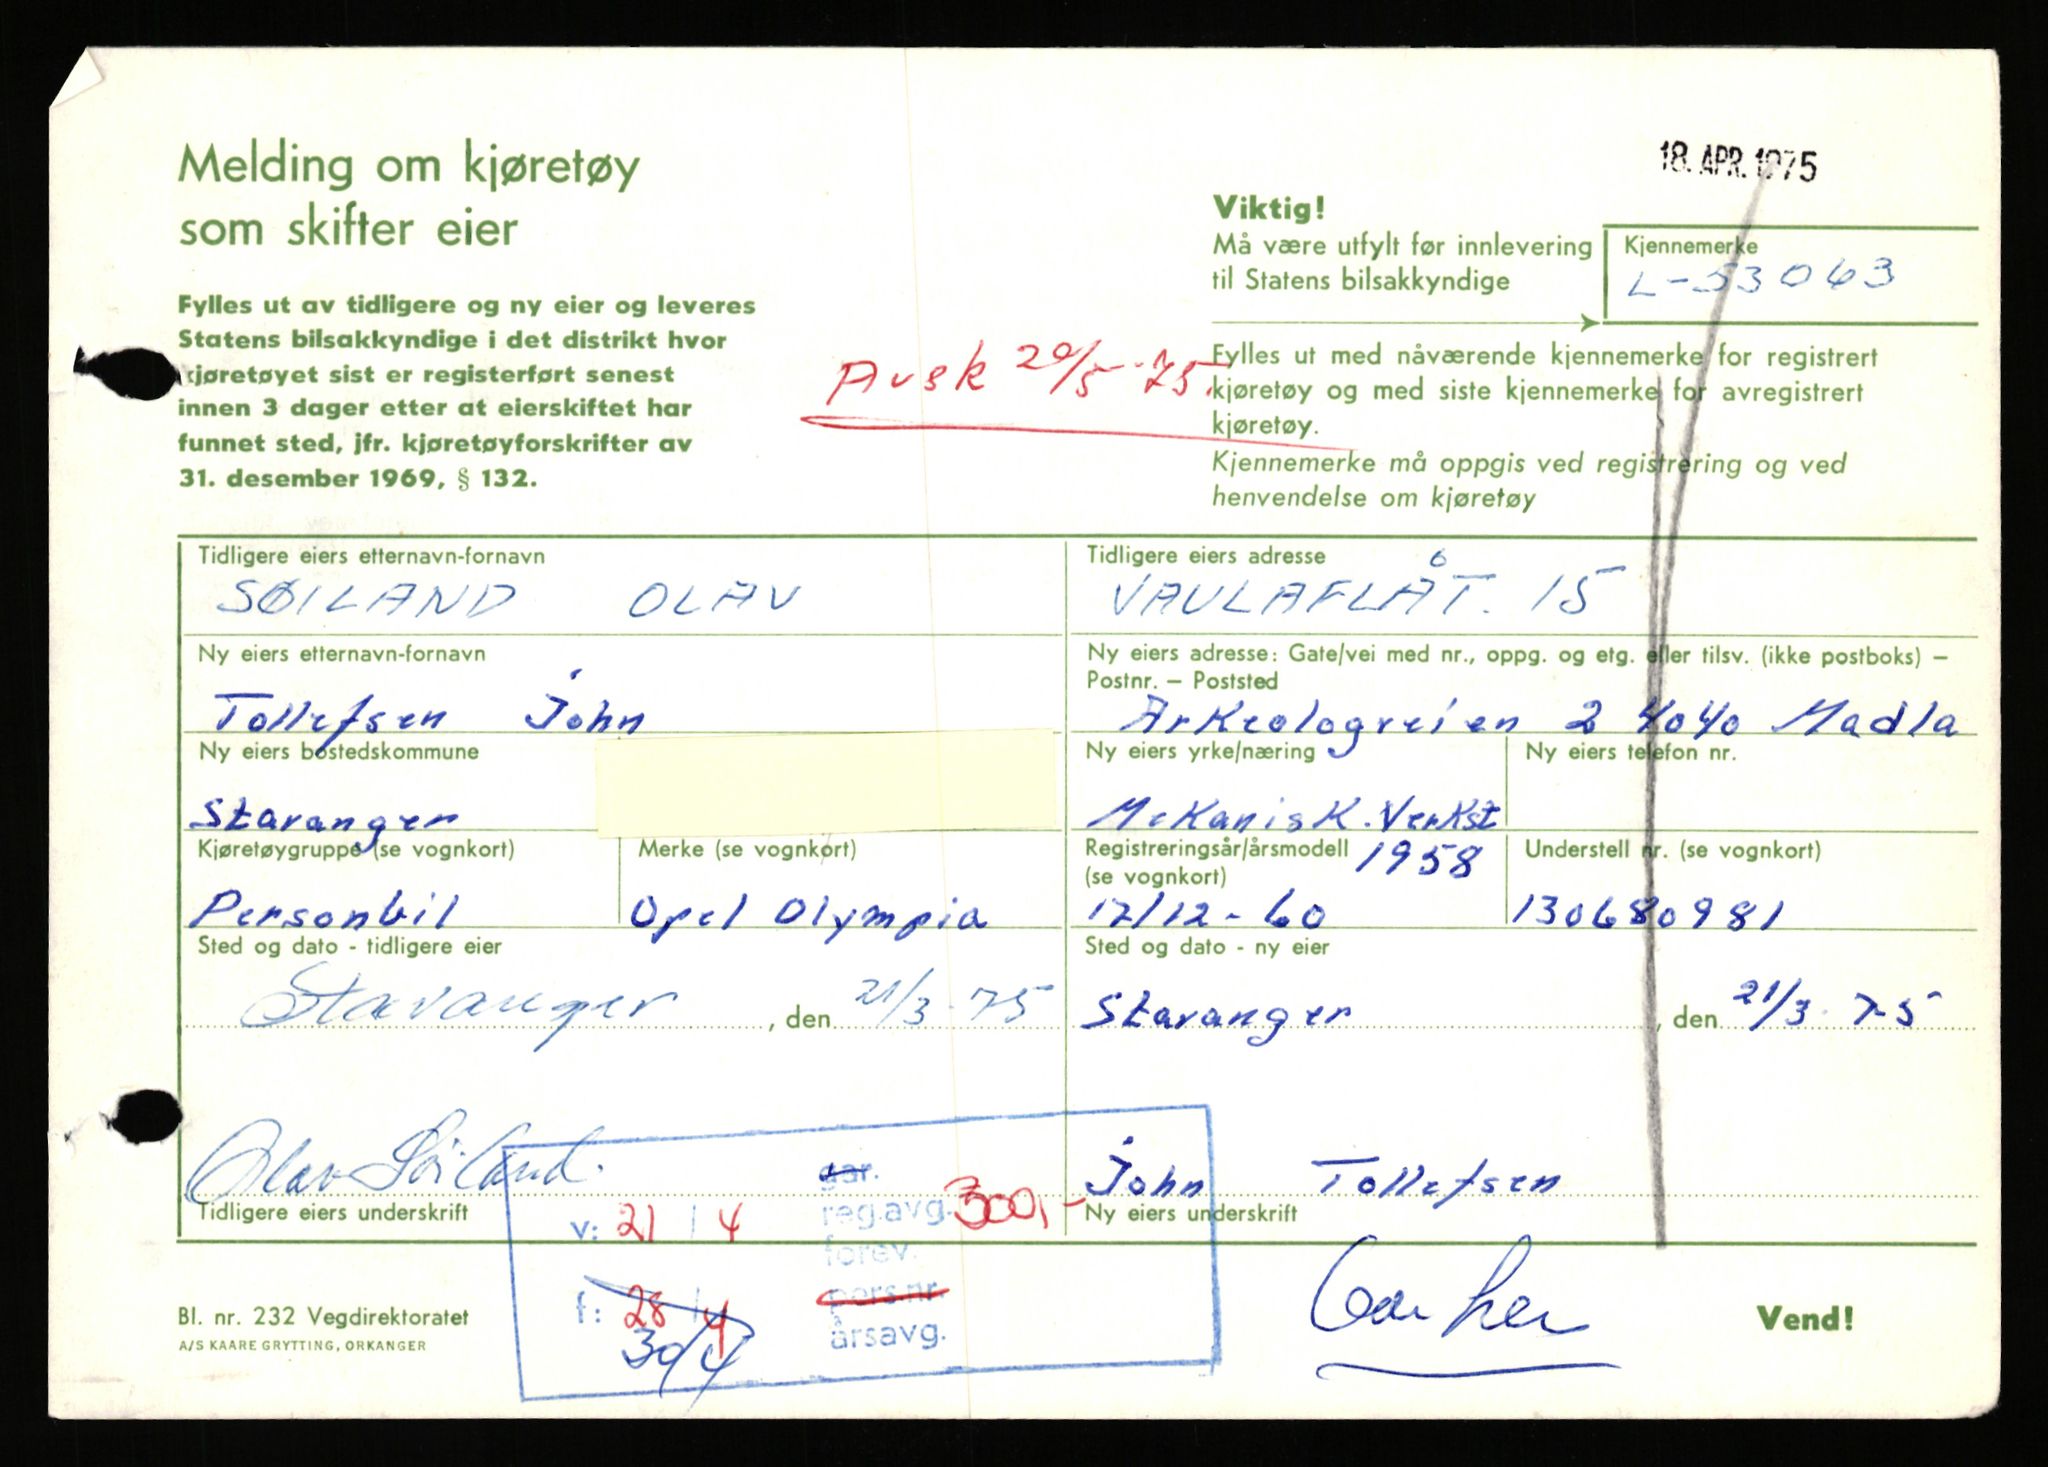 18. APR. 1975
Melding om kjøretøy
som skifter eier
Viktig!
Må være utfylt før innlevering
til Statens bilsakkyndige
Kjennemerke
L-53063
Fylles ut av tidligere og ny eier og leveres
Statens bilsakkyndige i det distrikt hvor
kjøretøyet sist er registerført senest
innen 3 dager etter at eierskiftet har
funnet sted, jfr. kjøretøyforskrifter av
31. desember 1969, § 132.
Avsk 20/5-75.
Fylles ut med nåværende kjennemerke for registrert
kjøretøy og med siste kjennemerke for avregistrert
kjøretøy.
Kjennemerke må oppgis ved registrering og ved
henvendelse om kjøretøy
Tidligere eiers etternavn-fornavn
SØILAND OLAV
Tidligere eiers adresse
VAULAFLÅT. 15
Ny eiers etternavn-fornavn
Tollefsen John
Ny eiers adresse: Gate/vei med nr., oppg. og etg. eller tilsv. (ikke postboks) –
Postnr. – Poststed
Arkeologveien 2 4040 Madla
Ny eiers bostedskommune
Stavanger
Ny eiers yrke/næring
Mekanisk. Verkst
Ny eiers telefon nr.
Kjøretøygruppe (se vognkort)
Personbil
Merke (se vognkort)
Opel Olympia
Registreringsår/årsmodell 1958
(se vognkort)
17/12-60
Understell nr. (se vognkort)
130680981
Sted og dato - tidligere eier
Stavanger, den 21/3-75
Sted og dato - ny eier
Stavanger, den 21/3.75
Olav Søiland.
Tidligere eiers underskrift
John Tollefsen
Ny eiers underskrift
gar.
v: 21/4 reg.avg. 300,-
forev.
f: 28/4 pers.nr.
30/4 årsavg.
Bl. nr. 232 Vegdirektoratet
A/S KAARE GRYTTING, ORKANGER
Vend!